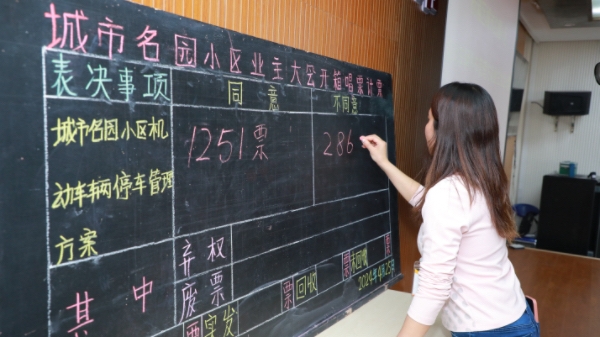 城市名园小区业主大会开箱唱票计票
表决事项 同意 不同意
城市名园小区机
动车辆停车管理
方案
1251票 286
其中 弃权
废票
实发
票回收
未回收
2024年4月25日